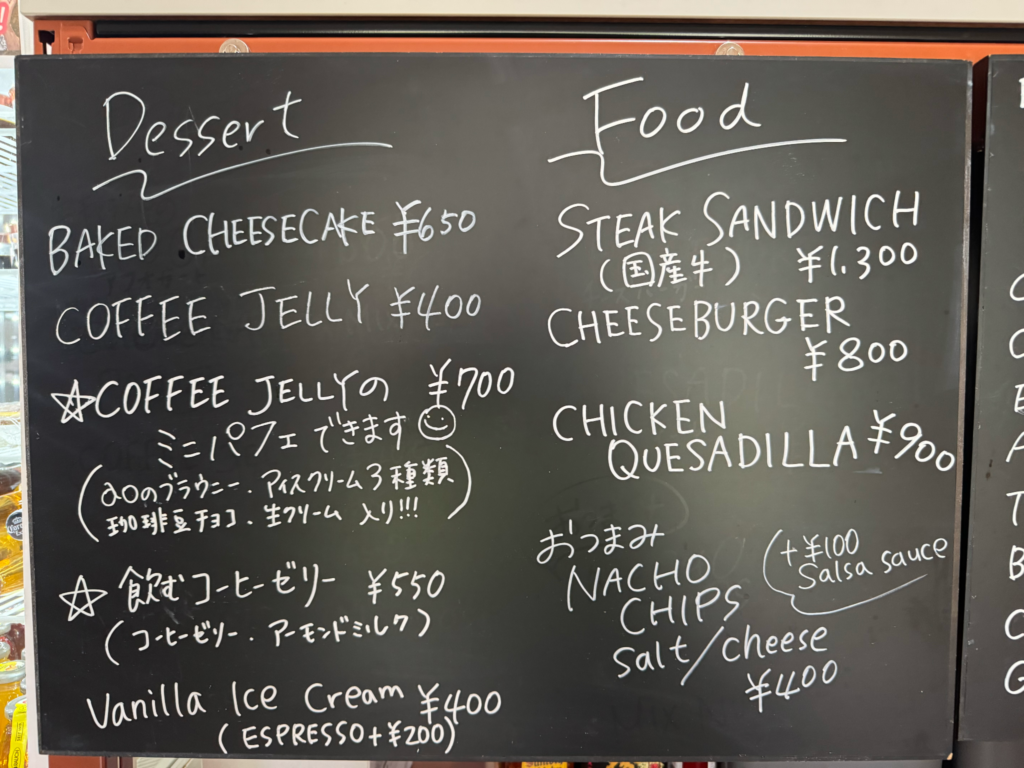 Dessert
BAKED CHEESECAKE ¥650
COFFEE JELLY ¥400
☆COFFEE JELLYの ¥700
ミニパフェできます☺
(aoのブラウニー.アイスクリーム3種類
珈琲豆チョコ.生クリーム入り!!!)
☆飲むコーヒーゼリー ¥550
(コーヒーゼリー.アーモンドミルク)
Vanilla Ice Cream ¥400
(ESPRESSO+¥200)
Food
STEAK SANDWICH
(国産牛) ¥1.300
CHEESEBURGER
¥800
CHICKEN
QUESADILLA ¥900
おつまみ
NACHO
CHIPS
(+¥100
Salsa sauce
Salt/cheese
¥400